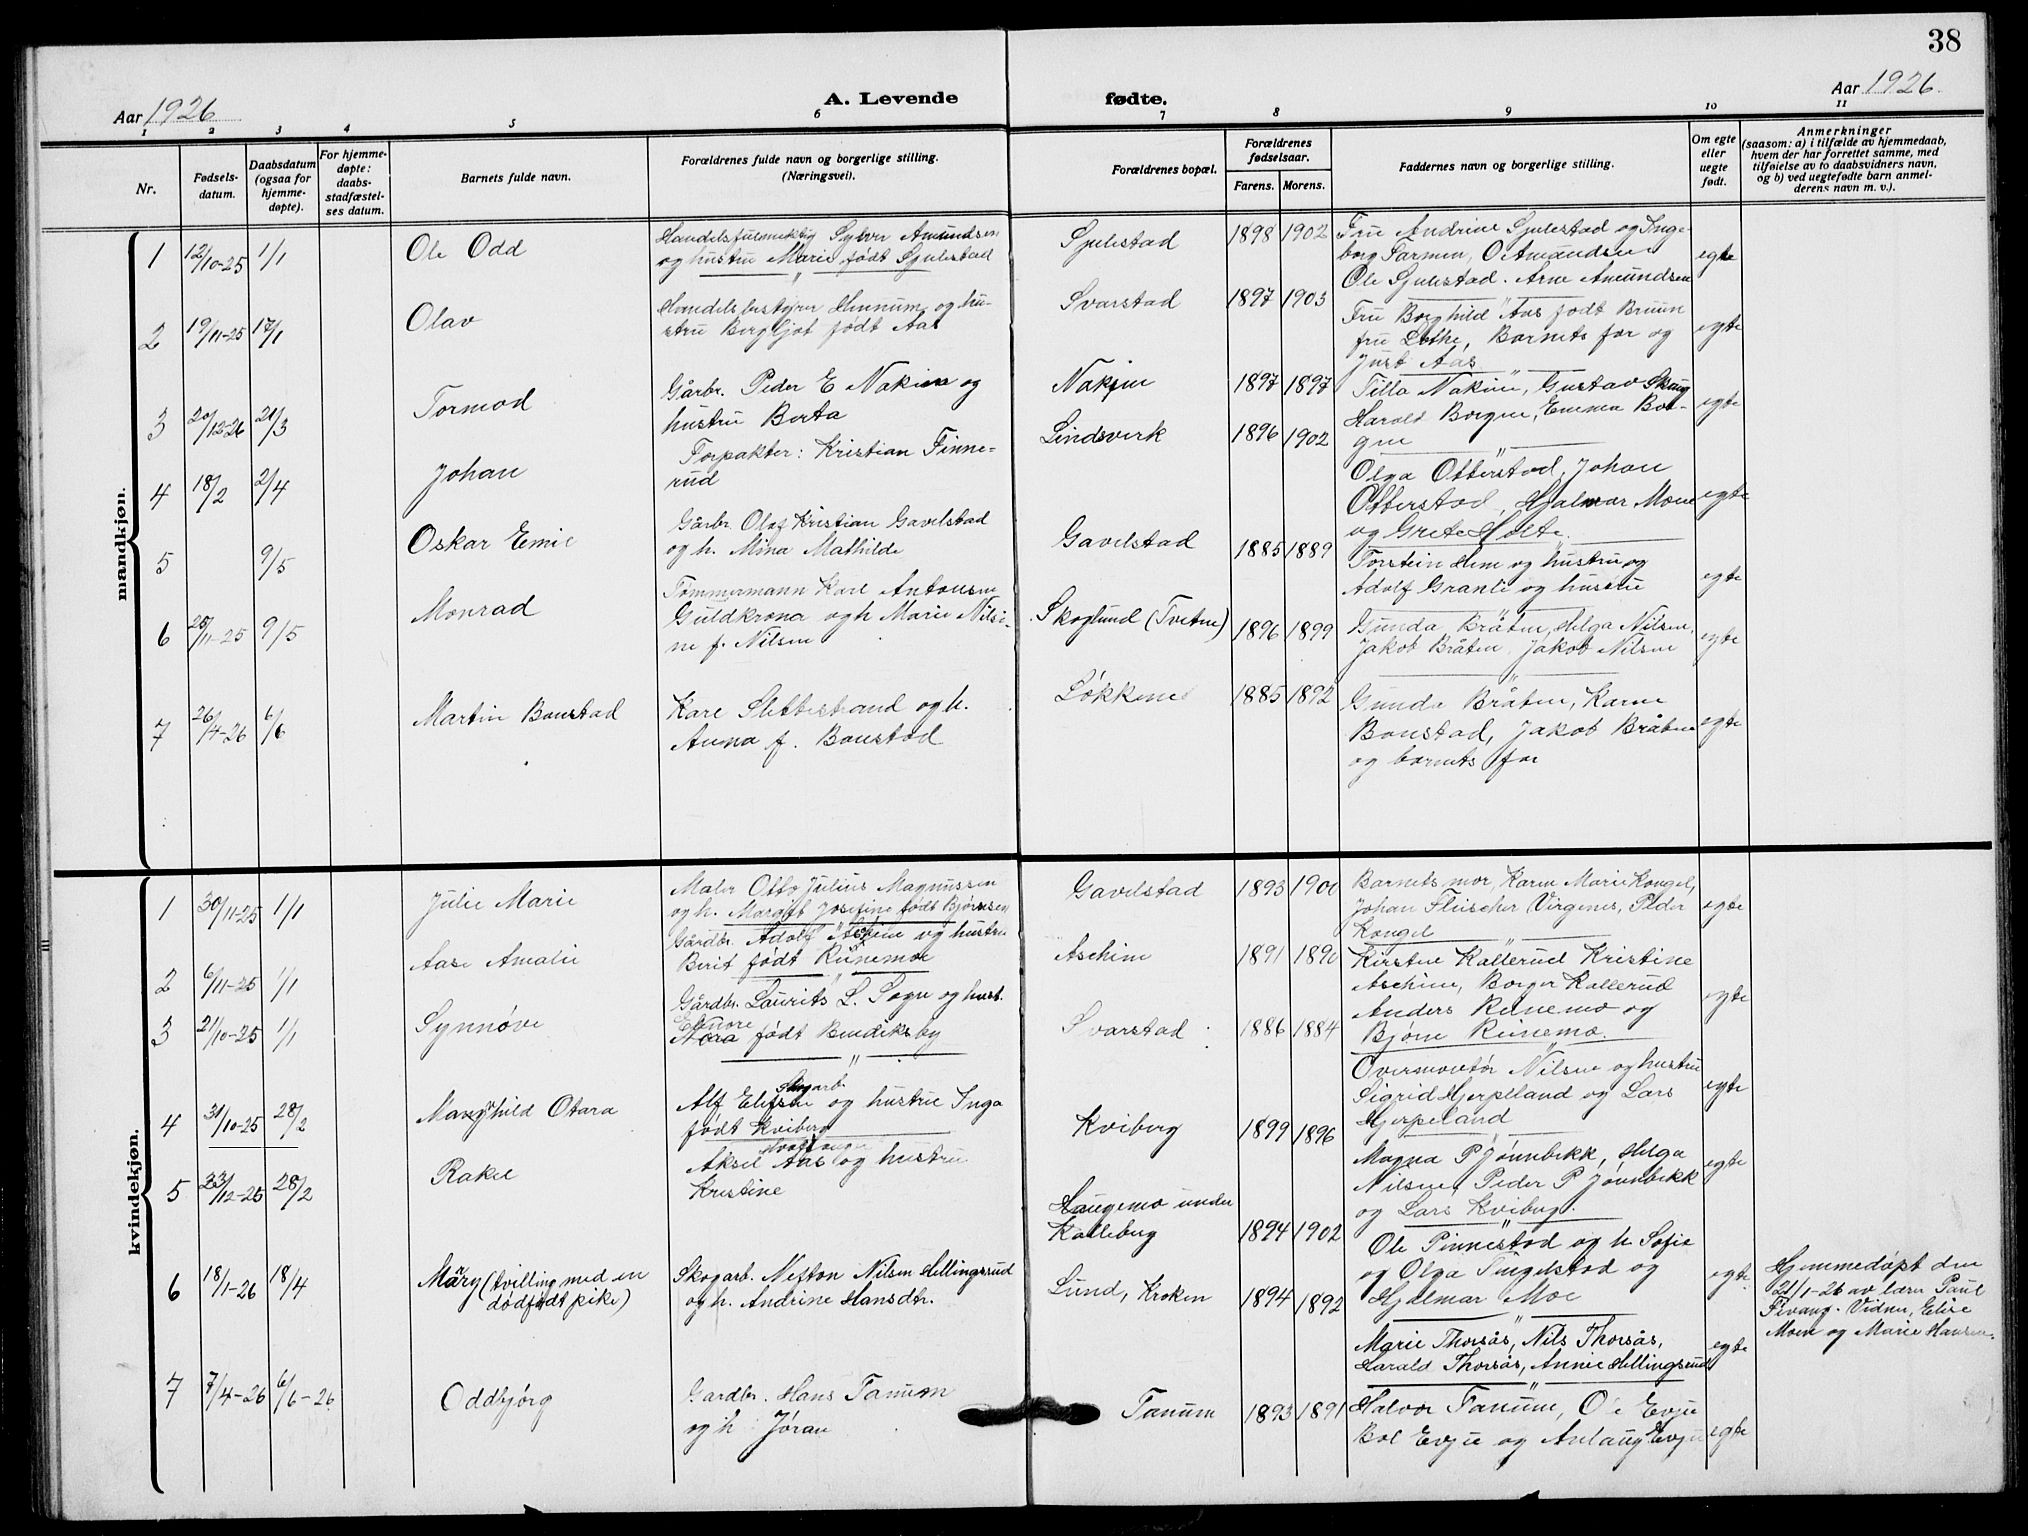 38
Aar 1926
A. Levende fødte.
Aar 1926.
1 2 3 4 5 6 7 8 9 10 11
Nr.
Fødsels-
datum.
Daabsdatum
(ogsaa for
hjemme-
døpte).
For hjemme-
døpte:
daabs-
stadfæstel-
ses datum.
Barnets fulde navn.
Forældrenes fulde navn og borgerlige stilling.
(Næringsvei).
Forældrenes bopæl.
Forældrenes
fødselsaar.
Farens. Morens.
Faddernes navn og borgerlige stilling.
Om egte
eller
uegte
født.
Anmerkninger
(saasom: a) i tilfælde av hjemmedaab,
hvem der har forrettet samme, med
tilføielse av to daabsvidners navn,
og b) ved uegtefødte barn anmel-
derens navn m. v.).
mandkjøn.
1 12/10-25 1/1 Ole Odd
Handelsfulmektig Sylver Amundsen
og hustru Marie født Sjulestad
Sjulestad 1898 1902
Fru Andrine Sjulestad og Inge-
borg Farmen, O. Amundsen
Ole Sjulestad. Arne Amundsen
egte
2 19/11-25 17/1 Olav
Handelsbestyrer Hennum og hu-
stru Bergljot født Aas
Svarstad 1897 1903
Fru Borghild Aas født Bruun
fru Lothe, Barnets far og
Just Aas
egte
3 20/12-26 21/3 Tormod
Gårbr. Peder E Nakim og
hustru Berta
Nakjem 1897 1897
Tilla Nakim, Gustav Skaug
Harald Borgen, Emma Bor-
gen
egte
4 18/2 2/4 Johan
Forpakter: Kristian Finne-
rud
Lindsverk 1896 1902
Olga Otterstad, Johan
Otterstad, Hjalmar Moen
og Grete Holte.
egte
5 9/5 Oskar Emil
Gårbr. Olaf Kristian Gavelstad
og h. Mina Mathilde
Gavelstad 1885 1889
Torstein Hem og hustru og
Adolf Granli og hustru
egte
6 25/11-25 9/5 Monrad
Tømmermann Karl Antonsen
Guldkrona og h Marie Nilsi-
ne f. Nilsen
Skoglund (Tveten) 1896 1899
Gunda Bråten, Helga Nilsen,
Jakob Bråten, Jakob Nilsen
egte
7 26/4-26 6/6 Martin Bonstad
Karl Slettestrand og h.
Anna f. Bonstad
Løkkene 1885 1892
Gunda Bråten, Karen
Bonstad, Jakob Bråten
og barnets far
egte
kvindekjøn.
1 30/11-25 1/1 Julie Marie
Maler Otto Julius Magnussen
og h. Margit Josefine født Bjørnsen
Gavelstad 1893 1900
Barnets mor, Karen Marie Kongel,
Johan Fleischer Virgenes, Peder
Kongel
egte
2 6/11-25 1/1 Aase Amalie
Gårdbr. Adolf Askjem og hustru
Berit født Reinemoe
Aschim 1891 1890
Kirsten Kallerud Kristine
Aschim, Borger Kallerud
Anders Reinemo og
Bjørn Reinemo.
egte
3 21/10-25 1/1 Synnøve
Gårdbr. Laurits L. Sogn og hust.
Elenore
Nora født Bendiksby
Svarstad 1886 1884
Overmontør Nilsen og hustru
Sigrid Hjerpelland og Lars
Hjerpeland
egte
4 31/10-25 28/2 Manghild Otara
Skogarb.
Alf Elefsen og hustru Inga
født Kviberg
Kviberg 1899 1896
Magna P Jønnbekk, Helga
Nilsen, Peder P. Jønnbekk
og Lars Kviberg.
egte
5 23/12-25 28/2 Rakel
Aksel Aas og hustru
Kristine
Haugemo under
Kalleberg 1894 1902
Ole Pinnestad og h. Sofie
og Olga Tingelstad og
Hjalmar Moe
egte
6 18/1-26 18/4 Mary (tvilling med en
dødfødt pike)
Skogarb. Nefton Nilsen Hellingsrud
og h. Andrine Hansdtr.
Lund, Kroken 1894 1892
Marie Thorsås, Nils Thorsås,
Harald Thorsås, Annie Hellingsrud
egte
Hjemmedøpt den
21/1-26 av lærer Paul
Fevang. Vidner, Elise
Moen og Marie Hansen.
7 7/4-26 6/6-26 Oddbjørg
Gardbr. Hans Tanum
og h Jøran
Tanum 1893 1891
Halvor Tanum, Ole Evju
Bol Evju og Anlaug Evju
egte